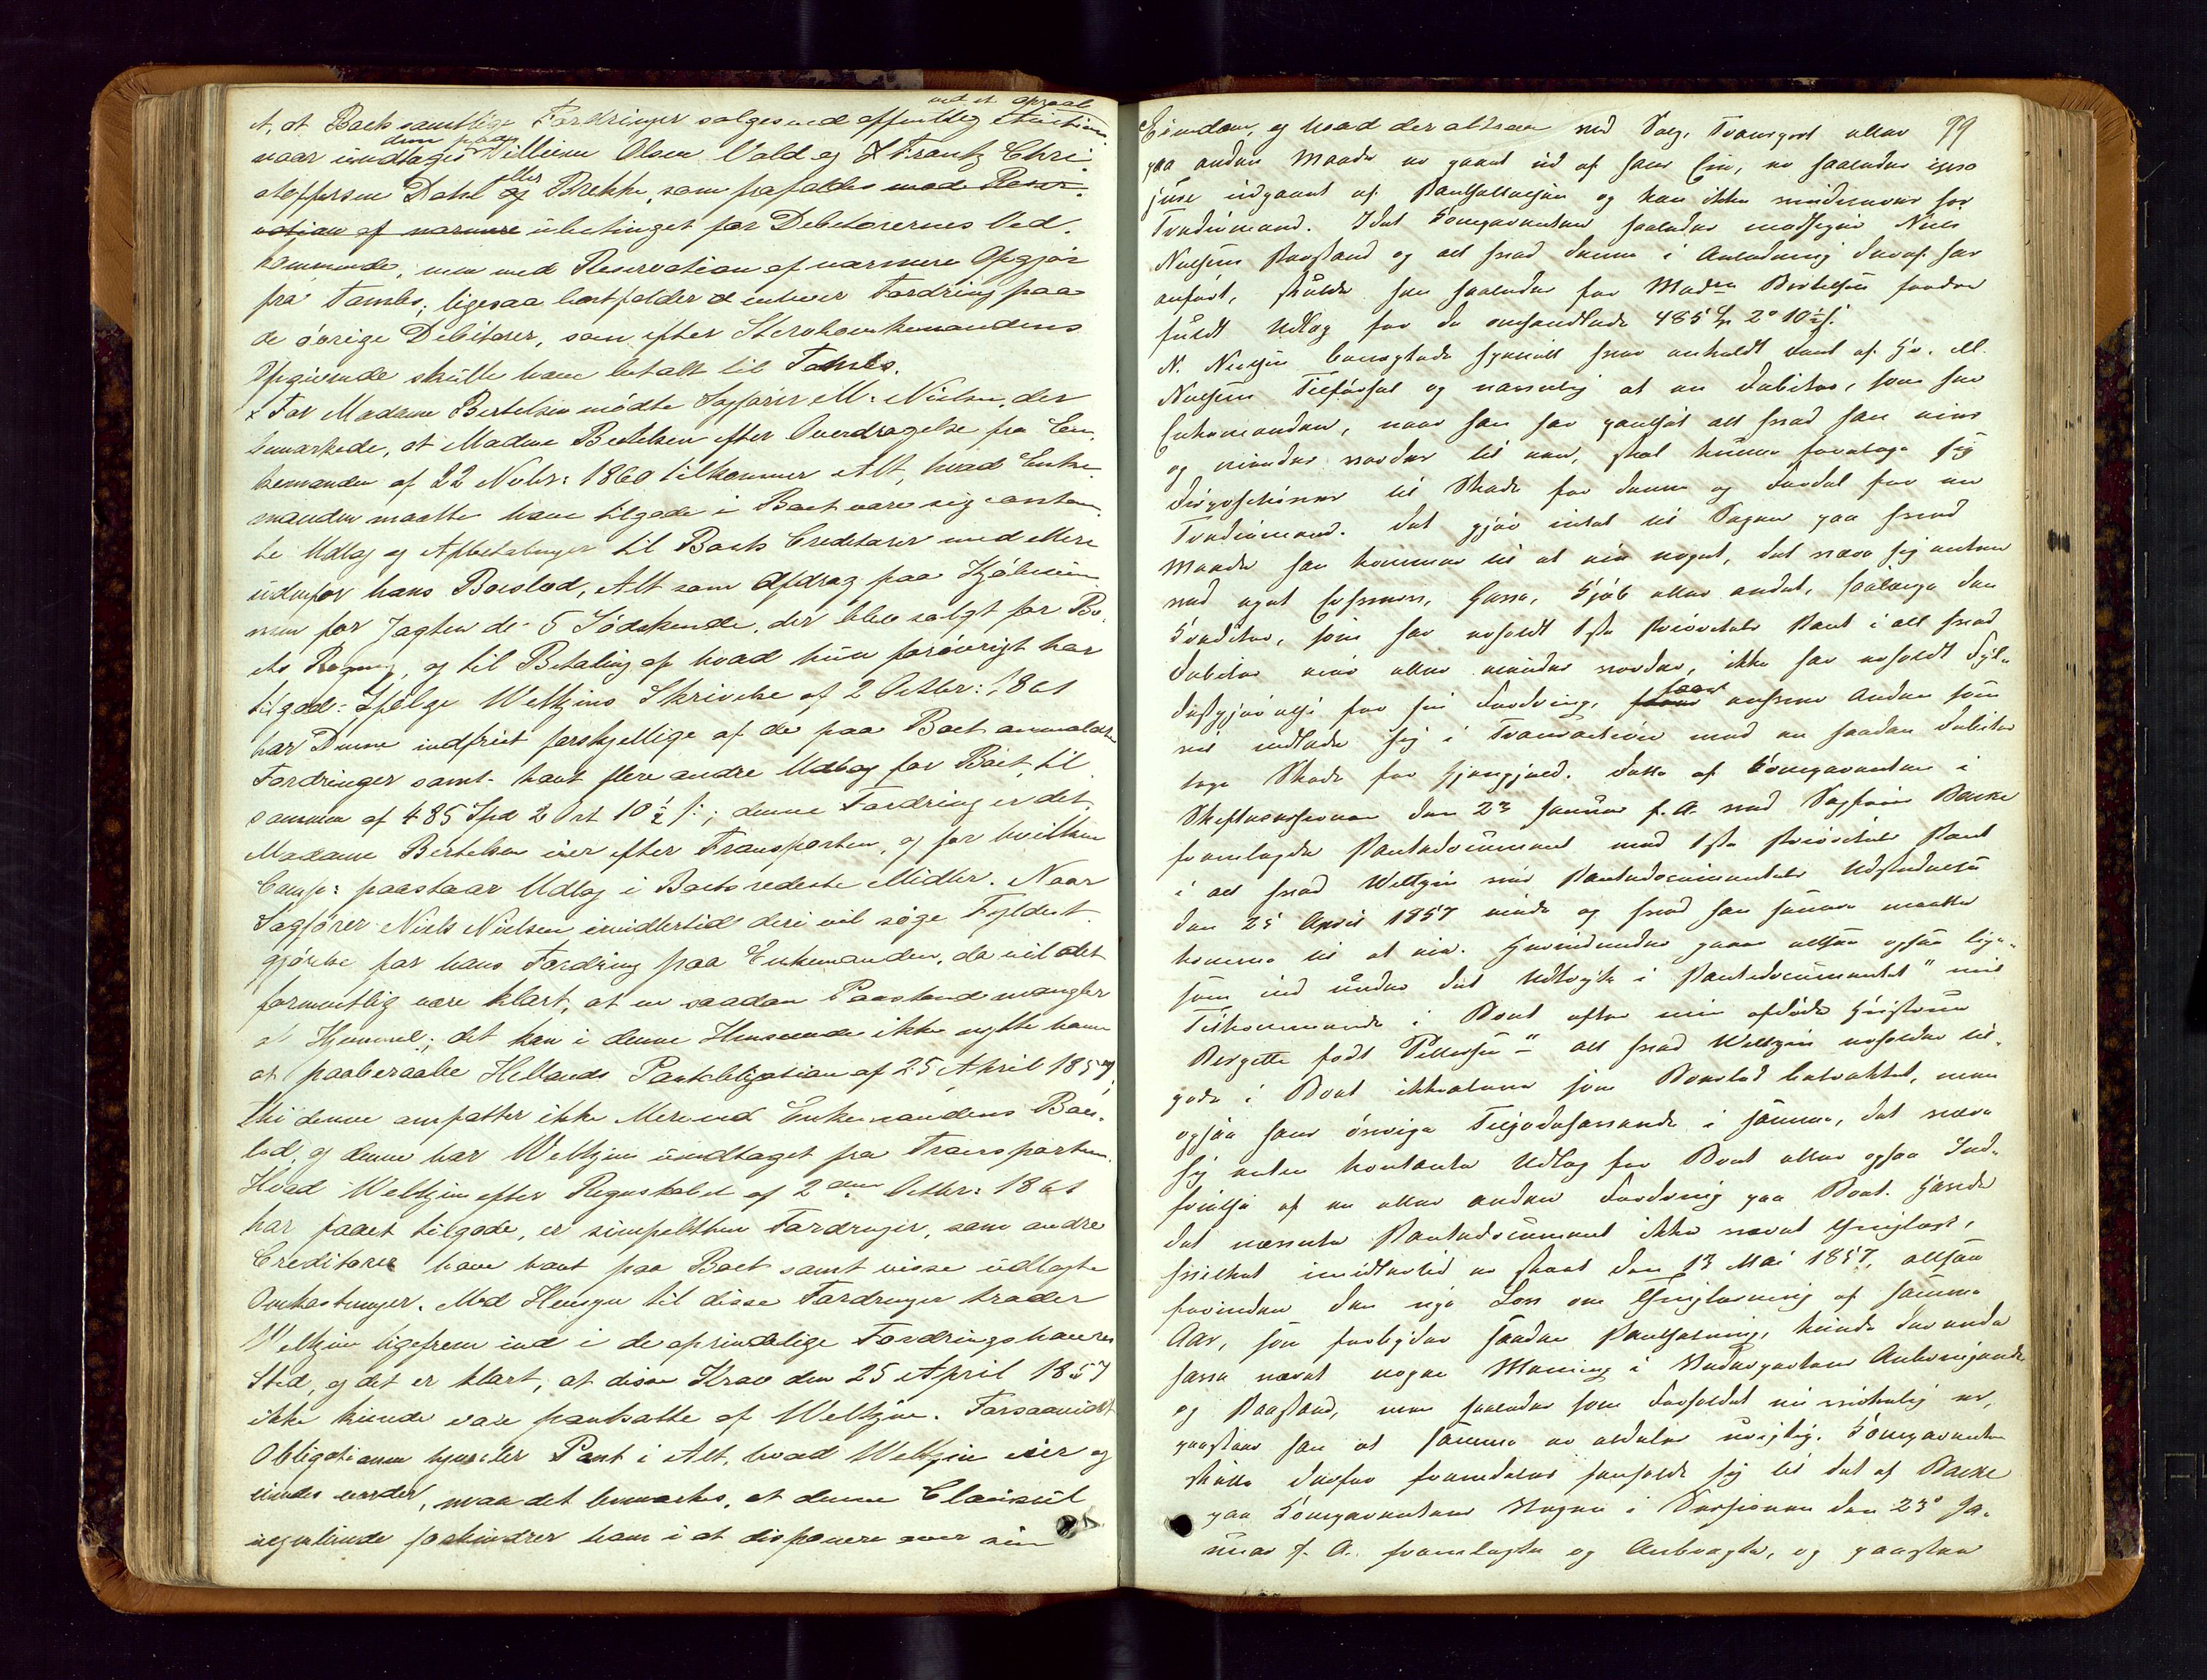 ved et opraab
et, at Boets samtlige Fordringer sælges ved offentlig Auction
den paa
naar undtages Villiem Olsen Vold og Frantz Chri
eller
stoffersen Dahl og Brekke, som frafaldes mod Reser-
vation af nærmere ubetinget for Debitorernes Ved-
kommende, men med Reservation af nærmere Opgjør
fra Tambs; ligesaa bortfalder enhver Fordring paa
de øvrige Debitorer, som efter Sterboenkemandens
Opgivende skulle have betalt til Tambs.
For Madame Bertelsen mødte Sagfører M. Nielsen, der
bemærkede, at Madme Bertelsen efter Overdragelse fra En-
kemanden af 22 Novbr: 1860 tilkommer Alt, hvad Enke-
manden maatte have tilgode i Boet være sig contan-
te Udlæg og Afbetalinger til Boets Creditorer med Mere
udenfor hans Boeslod, Alt som Afdrag paa Kjøbesum-
men for Jagten de 5 Sødskende, der blev solgt for Bo-
ets Regning, og til Betaling af hvad hun forøvrigt har
tilgode: Ifølge Weltzins Skrivelse af 2 Octbr: 1861
har Denne indfriet forskjellige af de paa Boet anmeldte
Fordringer samt havt flere andre Udlæg for Boet, til
Summa af 485 Spd 2 Ort 10 ½ s:; denne Fordring er det,
Madame Bertelsen eier efter Transporten, og for hvilken
Comp: paastaar Udlæg i Boets redeste Midler. Naar
Sagfører Niels Nielsen imidlertid deri vil søge Fyldest-
gjørelse for hans Fordring paa Enkemanden, da vil det
formentlig være klart, at en saadan Paastand mangler
al Hjemmel; det kan i denne Henseende ikke nytte ham
at paaberaabe Hellands Pantobligation af 25 April 1857,
thi denne omfatter ikke Mere end Enkemandens Boes-
lod, og denne har Weltzin undtaget fra Transporten.
Hvad Weltzin efter Regnskabet af 2den Octbr: 1861
har faaet tilgode, er simpelthen Fordringer, som andre
Creditorer have havt paa Boet samt visse udlagte
Omkostninger. Med Hensyn til disse Fordringer træder
Weltzin ligefrem ind i de oprindelige Fordringshaveres
Sted, og det er klart, at disse Krav den 25 April 1857
ikke kunde være pantsatte af Weltzin. Forsaavidt
Obligationen hjemler Pant i Alt, hvad Weltzin eier og
eiendes vorder, maa det bemærkes, at denne Clausul
ingenlunde forhindrer ham i at disponere over sin
99
Eiendom, og hvad der altsaa ved Salg, Transport eller
paa anden Maade er gaaet ud af hans Eie, er saaledes ipso
jure udgaaet af Panthæftelsen og kan ikke vindiceres fra
Trediemand. Idet Comparenten saaledes modsiger Niels
Nielsens Paastand og alt hvad denne i Anledning deraf har
anført, skulde han saaledes for Madm Bertelsen fordre
fuldt Udlæg for de omhandlede 485 Spd 2 o 10 ½ s.
N. Nielsen benegtede specielt hvad anholdt dent af Hr. M.
Nielsens Tilførsel og navnlig at en Debitor, som her
Enkemanden, naar han har pantsat alt hvad han eier
og eiendes vorder til een, skal kunne foretage sig
Dispositioner til Skade for denne og Fordel for en
Trediemand. Det gjør intet til Sagen paa hvad
Maade han kommer til at eie noget, det være sig enten
ved eget Erhverv, Gave, Kjøb eller andet, saalænge den
Creditor, som har erholdt 1ste Prioritets Pant i alt hvad
Debitor eier eller eiendes vorder, ikke har erholdt Fyl-
faar
destgjørelse for sin Fordring, faaer enhver Anden som
vil indlade sig i Transaction med en saadan Debitor
tage Skade for Hjemgjæld. Dette af Comparenten i
Skiftesessionen den 23 Januar f. A. ved Sagfører Backe
fremlagte Pantedocument med 1ste Prioritets Pant
i alt hvad Weltzin ved Pantedocumentets Udstedelse
den 25 April 1857 eiede og hvad han senere maatte
komme til at eie. Herindunder gaaer altsaa ogsaa lige-
som ind under det Udtryk i Pantedocumentet "mit
Tilkommende i Boet efter min afdøde Hustrue
Bergette født Pettersen" – alt hvad Weltzin erholder til-
gode i Boet ikke alene som Boeslod betragtet, men
ogsaa hans øvrige Tilgodehavende i samme, det være
sig enten kontante Udlæg for Boet eller ogsaa Ind-
frielse af en eller anden Fordring paa Boet. Havde
det nævnte Pantedocument ikke været thinglæst,
hvilket imidlertid er skeet den 13 Mai 1857, altsaa
førinden den nye Lov om Thinglæsning af samme
Aar, som forbyder saadan Pantsætning, kunde der endda
have været nogen Mening i Modpartens Anbringende
og Paastand, men saaledes som Forholdet nu virkelig er,
paastaar han at samme er aldeles urigtig. Comparenten
skulle derfor fremdeles henholde sig til det af Backe
paa Comparentens Vegne i Sessionen den 23de Ja-
nuar f. A. fremlagte og Anbragte, og paastaa